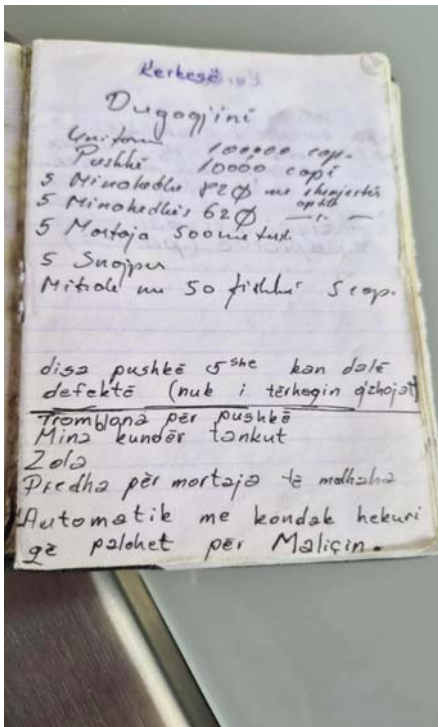 Kerkesë
Dugagjini
Uniform 100000 cop.
Pushkë 10000 copë
5 Minahedhë 82 Ø me shenjestër optik
5 Minahedhës 62 Ø — " —
5 Mortaja 500
5 Snajper
Mitraloz me 50 fishkë 5 cop.
disa pushkë 5she kan dalë
defektë (nuk i tërheqin gzhojat)
Tromblona për pushkë
Mina kundër tankut
Zola
Predha për mortaja të mdhaha
Automatik me kondak hekuri
që palohet për Maliçin.